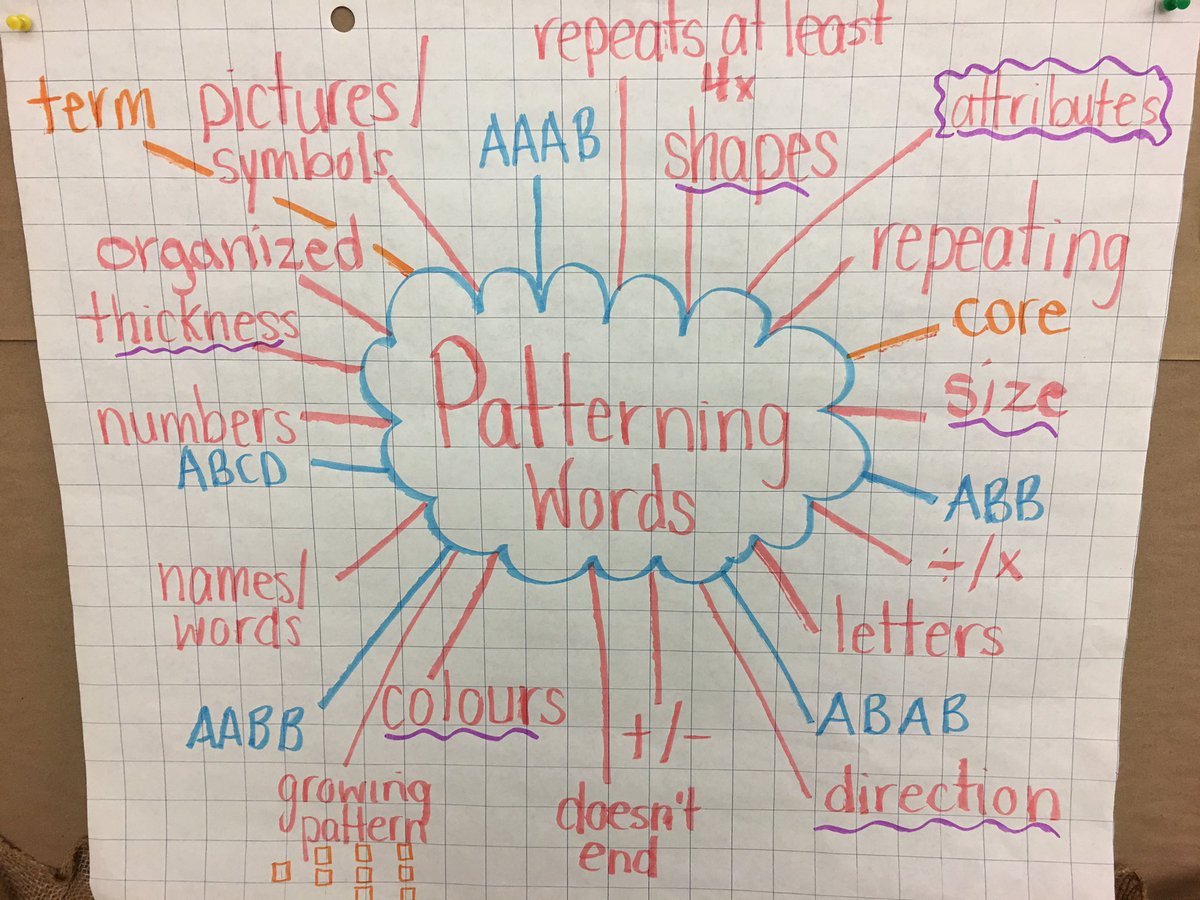 repeats at least
4x
term
pictures/
symbols
AAAB
shapes
attributes
organized
repeating
thickness
core
size
numbers
ABCD
Patterning
Words
ABB
÷/x
names/
words
letters
AABB
colours
+/-
ABAB
growing
pattern
doesn't
end
direction